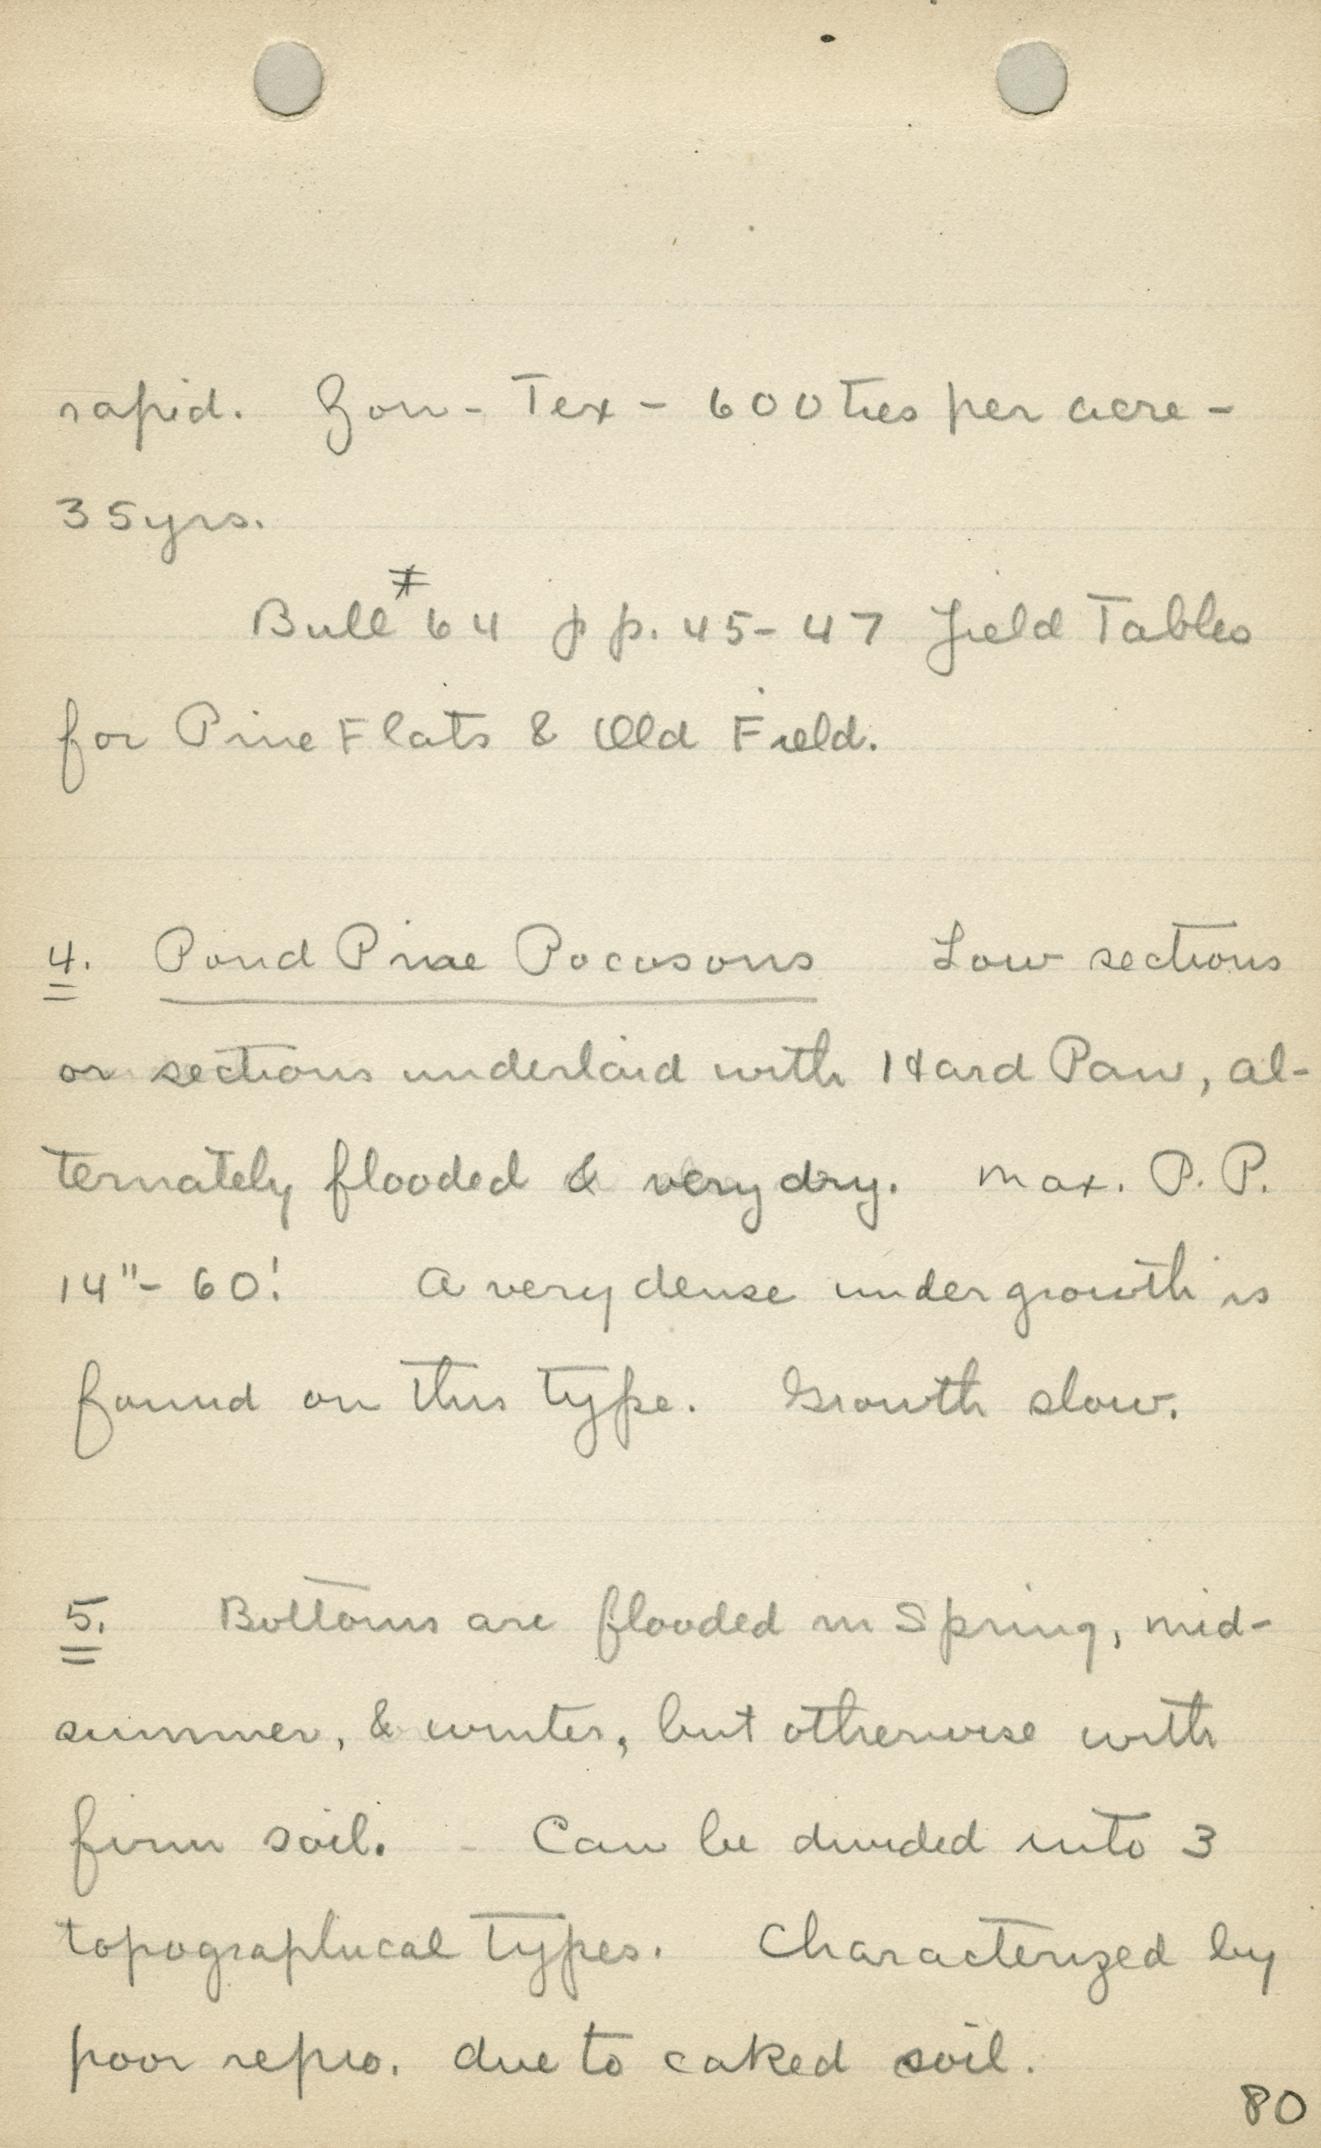 rapid. Zon - Tex - 600 ties per acre -
35 yrs.
Bull # 64 pp. 45 - 47 Yield Tables
for Pine Flats & Old Field.
4. Pond Pine Pocosons Low sections
or sections underlaid with Hard Pan, al-
ternately flooded & very dry. Max. P. P.
14" - 60'. A very dense undergrowth is
found on this type. Growth slow.
5. Bottoms are flooded in Spring, mid-
summer, & winter, but otherwise with
firm soil. - Can be divided into 3
topographical types. Characterized by
poor repro. due to caked soil.
80